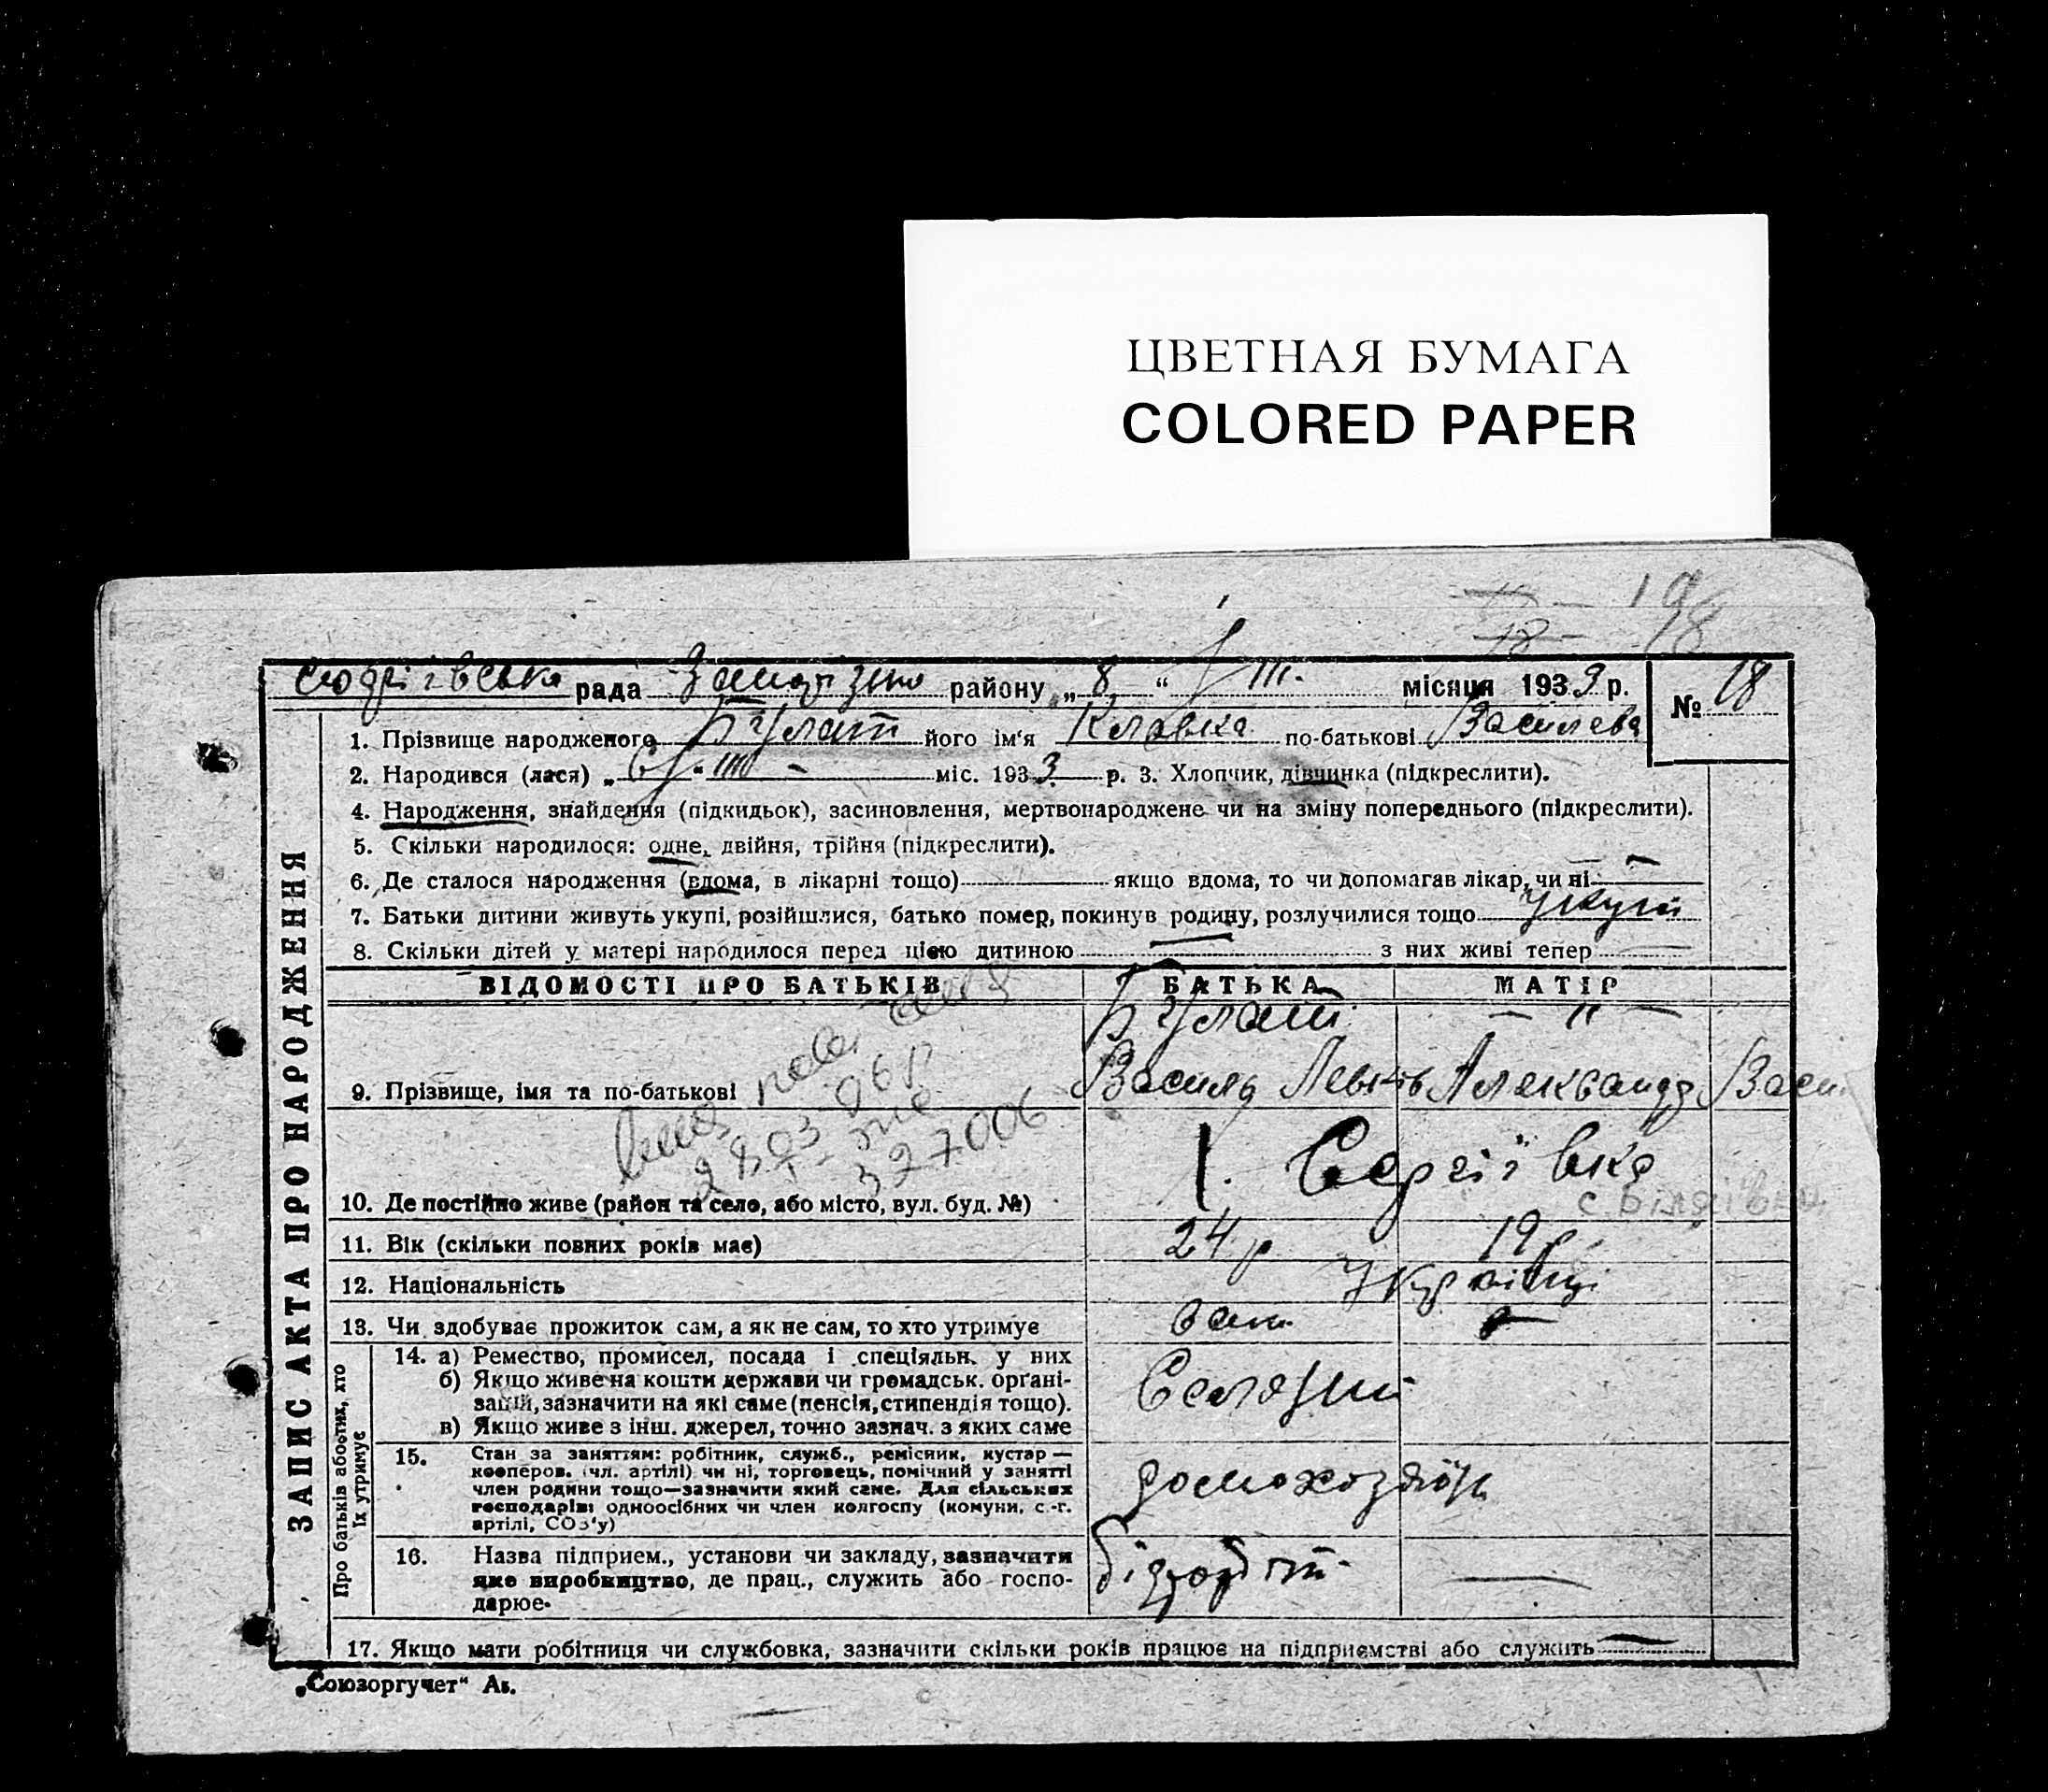 ЦВЕТНАЯ БУМАГА
COLORED PAPER
18 19
18 18
рада району „ 8 “ III. місяця 1933 р. № 18
ЗАПИС АКТА ПРО НАРОДЖЕННЯ
1. Прізвище народженого Булат його ім'я Клавка по-батькові Василева
2. Народився (лася) „ 6 “ III – міс. 1933 р. 3. Хлопчик, дівчинка (підкреслити).
4. Народження, знайдення (підкидьок), засиновлення, мертвонароджене чи на зміну попереднього (підкреслити).
5. Скільки народилося: одне, двійня, трійня (підкреслити).
6. Де сталося народження (вдома, в лікарні тощо) якщо вдома, то чи допомагав лікар, чи ні —
7. Батьки дитини живуть укупі, розійшлися, батько помер, покинув родину, розлучилися тощо Укупі
8. Скільки дітей у матері народилося перед цією дитиною — з них живі тепер —
ВІДОМОСТІ ПРО БАТЬКІВ БАТЬКА МАТІР
Булат — " —
9. Прізвище, імя та по-батькові Василь Левків Александр Васи
327006
10. Де постійно живе (район та село, або місто, вул. буд. №) Сергіївка
с. Біляївка
11. Вік (скільки повних років має) 24 р 19 р.
12. Національність Українці
13. Чи здобуває прожиток сам, а як не сам, то хто утримує сам —
Про батьків або тих, хто їх утримує
14. а) Ремество, промисел, посада і спеціяльн. у них
б) Якщо живе на кошти держави чи громадськ. орґані-
зацій, зазначити на які саме (пенсія, стипендія тощо).
в) Якщо живе з інш. джерел, точно зазнач. з яких саме
Селянин
15. Стан за заняттям: робітник, служб., ремісник, кустар —
кооперов. (чл. артілі) чи ні, торговець, помічний у занятті
член родини тощо—зазначити який саме. Для сільських
господарів: одноосібних чи член колгоспу (комуни, с.-г.
артілі, СОЗ'у)
домохозяїн
16. Назва підприєм., установи чи закладу, зазначити
яке виробництво, де прац., служить або госпо-
дарює.
—
17. Якщо мати робітниця чи службовка, зазначити скільки років працює на підприємстві або служить —
„Союзоргучет“ Ав.